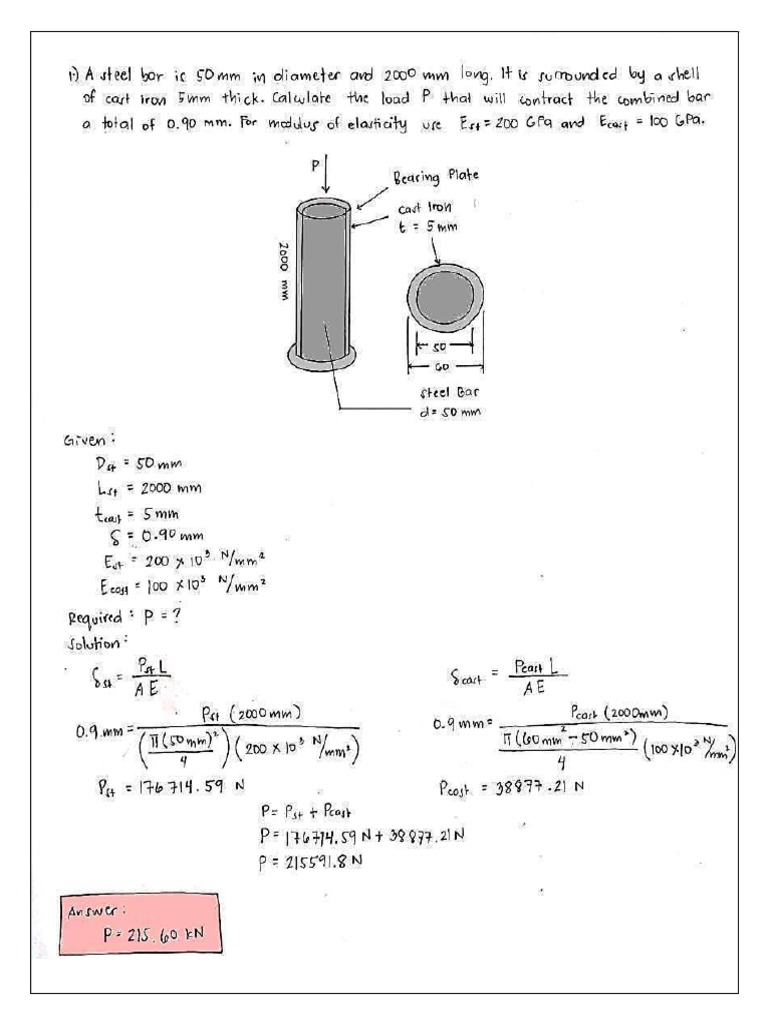 1.) A steel bar is 50mm in diameter and 2000 mm long. It is surrounded by a shell
of cast iron 5mm thick. Calculate the load P that will contract the combined bar
a total of 0.90 mm. For modulus of elasticity use Est = 200 GPa and Ecast = 100 GPa.
P
Bearing Plate
cast Iron
t = 5mm
2000 mm
50
60
steel Bar
d = 50 mm
Given:
Dst = 50 mm
Lst = 2000 mm
tcast = 5mm
δ = 0.90 mm
Est = 200 × 10³ N/mm²
Ecast = 100 ×10³ N/mm²
Required: P = ?
Solution:
δst = Pst L / A E
δcast = Pcast L / A E
0.9 mm = Pst (2000mm) / (π(50mm)²/4)(200 × 10³ N/mm²)
0.9 mm = Pcast (2000mm) / π(60mm² - 50mm²)/4 (100×10³ N/mm²)
Pst = 176 714.59 N
Pcast = 38877.21 N
P = Pst + Pcast
P = 176714.59 N + 38877.21N
P = 215591.8 N
Answer:
P = 215.60 kN